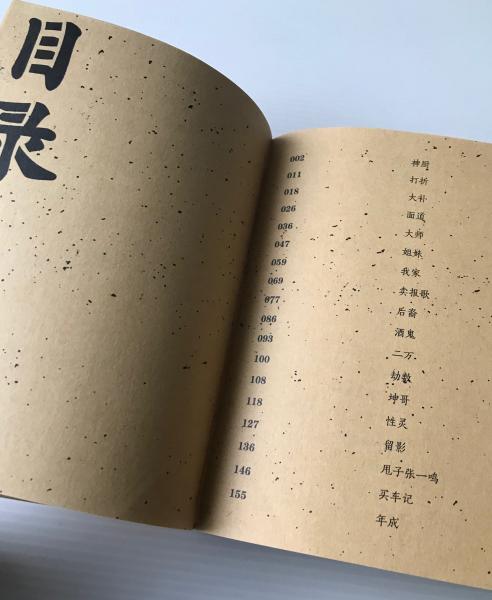 目录
002 神厨
011 打折
018 大补
026 面道
036 大师
047 姐妹
059 我家
069 卖报歌
077 后裔
086 酒鬼
093 二万
100 劫数
108 坤哥
118 性灵
127 留影
136 甩子张一鸣
146 买车记
155 年成